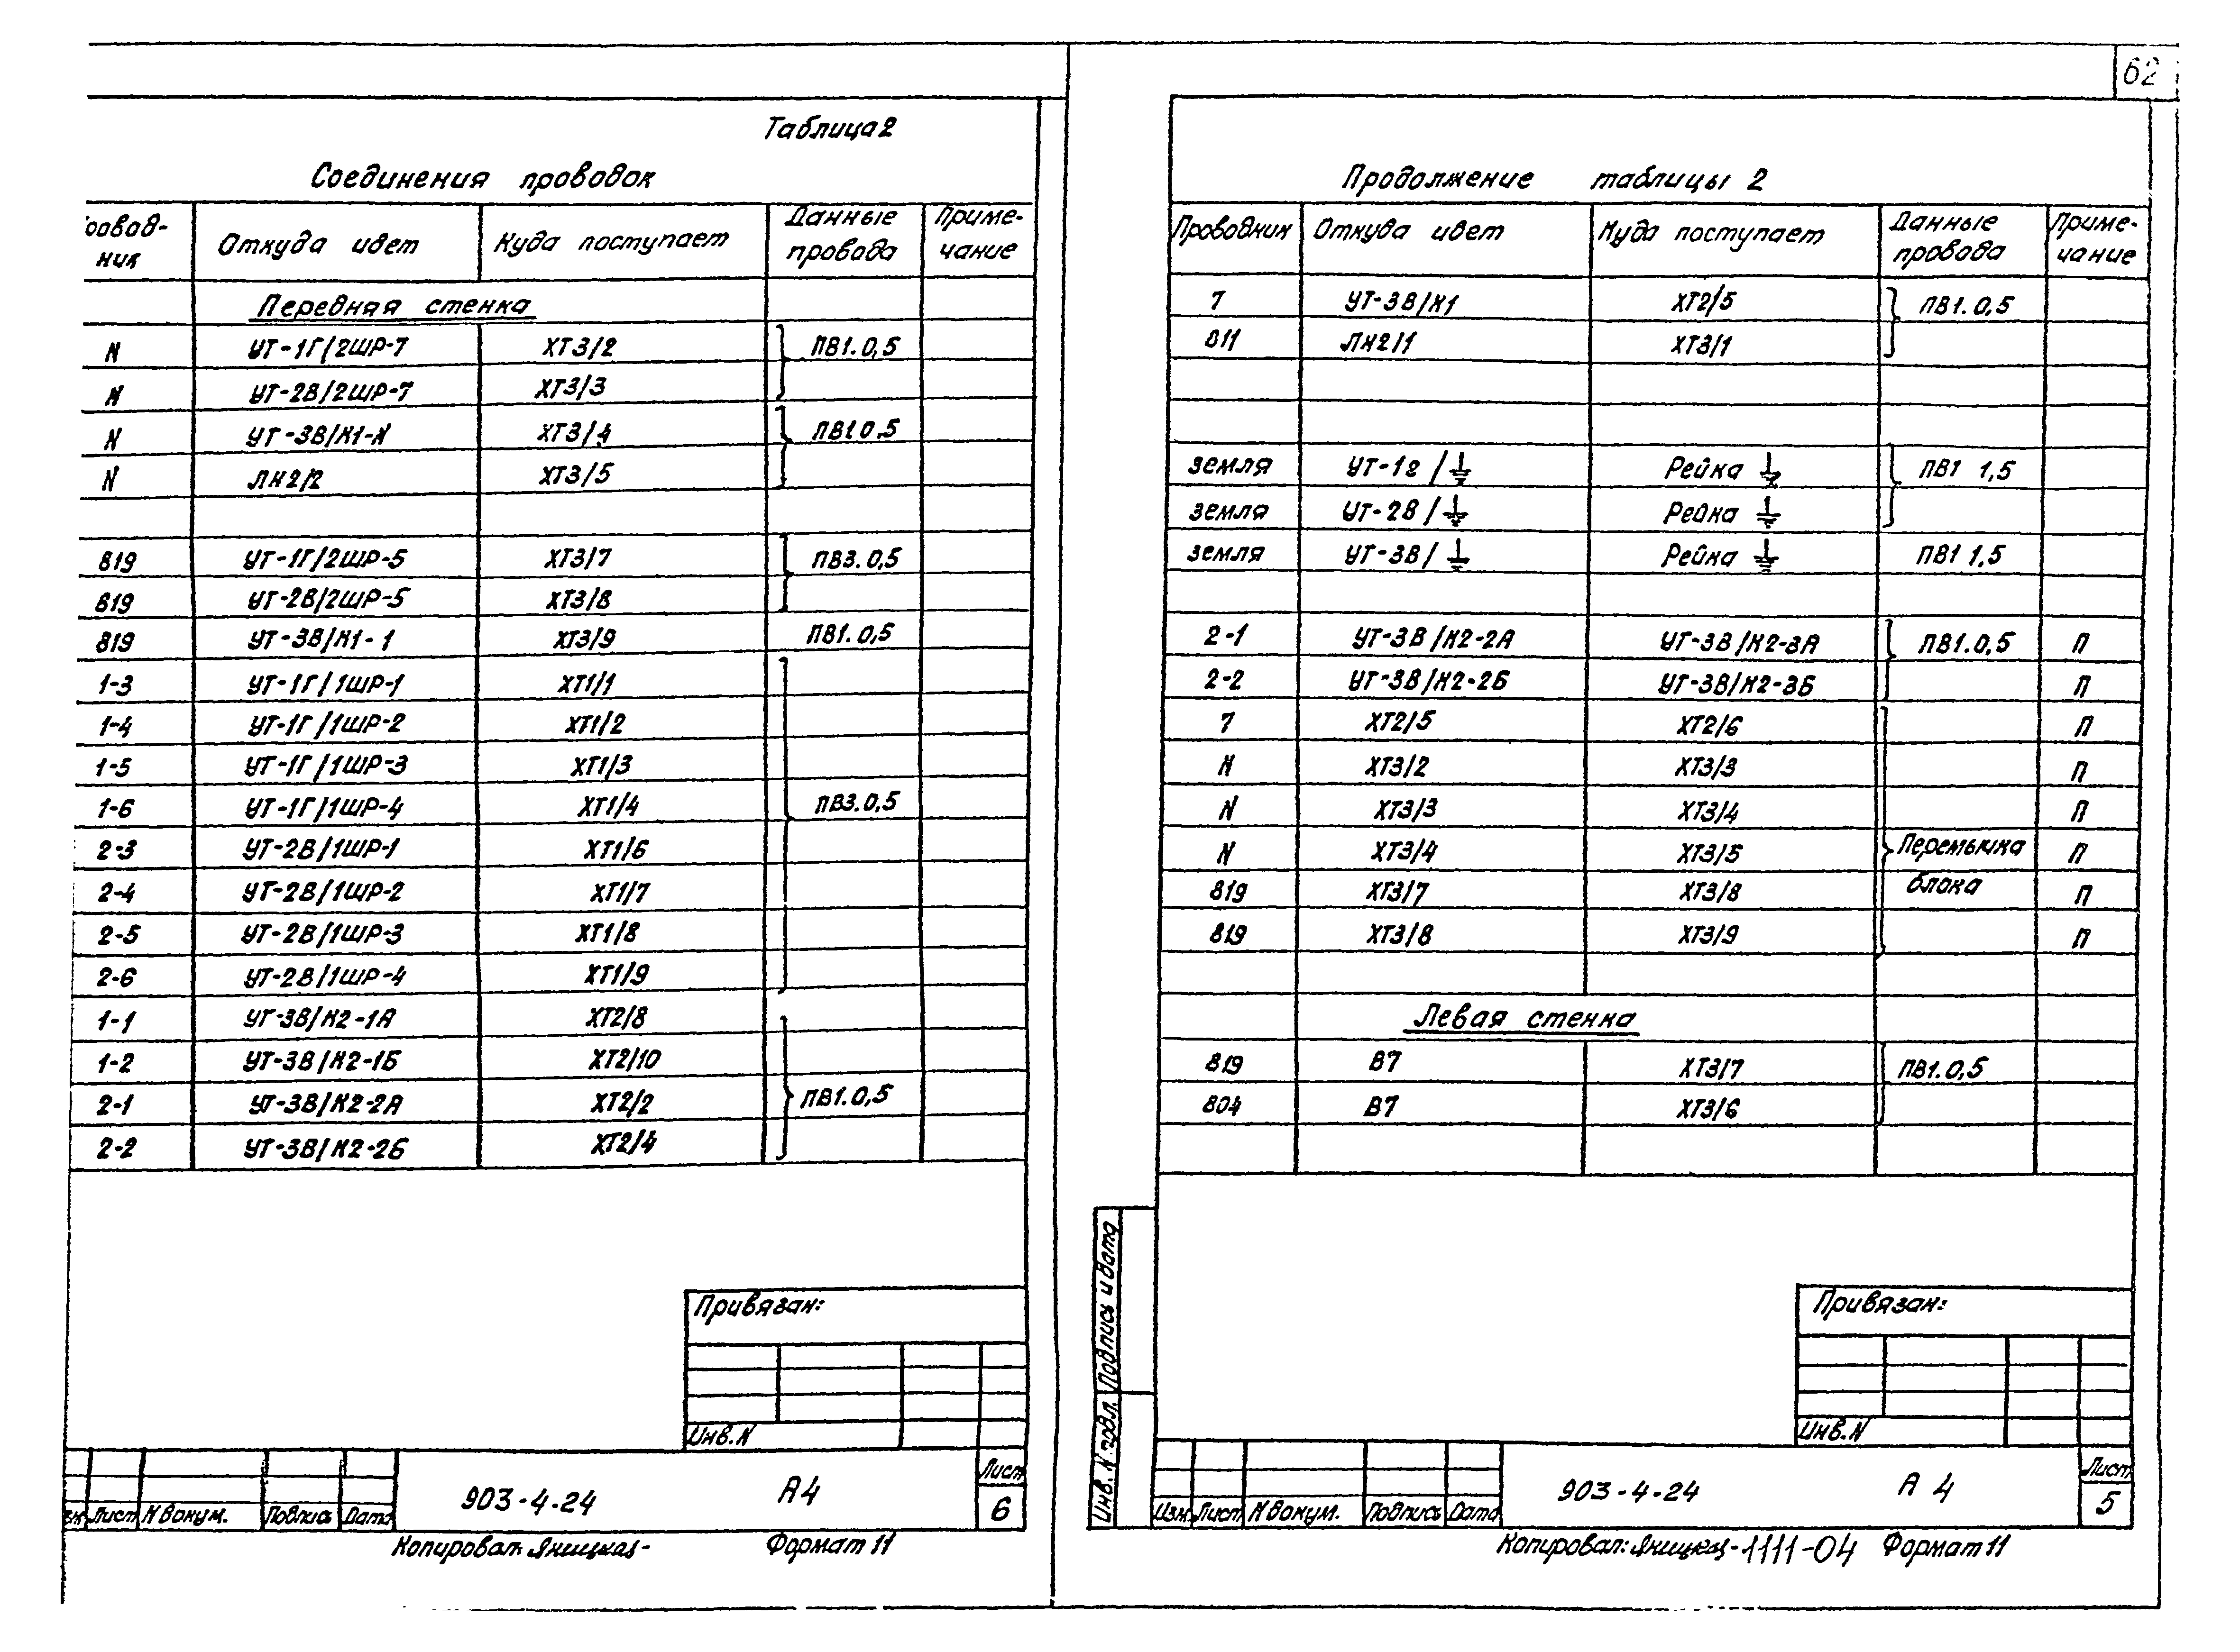 62
Таблица 2
Соединения проводок
Провод-ник Откуда идет Куда поступает Данные провода Приме-чание
Передняя стенка
N УТ-1Г/2ШР-7 ХТ3/2 ПВ1.0,5
N УТ-2В/2ШР-7 ХТ3/3
N УТ-3В/К1-N ХТ3/4 ПВ1 0,5
N ЛК2/2 ХТ3/5
819 УТ-1Г/2ШР-5 ХТ3/7 ПВ3.0,5
819 УТ-2В/2ШР-5 ХТ3/8
819 УТ-3В/К1-1 ХТ3/9 ПВ1.0,5
1-3 УТ-1Г/1ШР-1 ХТ1/1
1-4 УТ-1Г/1ШР-2 ХТ1/2
1-5 УТ-1Г/1ШР-3 ХТ1/3
1-6 УТ-1Г/1ШР-4 ХТ1/4 ПВ3.0,5
2-3 УТ-2В/1ШР-1 ХТ1/6
2-4 УТ-2В/1ШР-2 ХТ1/7
2-5 УТ-2В/1ШР-3 ХТ1/8
2-6 УТ-2В/1ШР-4 ХТ1/9
1-1 УТ-3В/К2-1А ХТ2/8
1-2 УТ-3В/К2-1Б ХТ2/10
2-1 УТ-3В/К2-2А ХТ2/2 ПВ1.0,5
2-2 УТ-3В/К2-2Б ХТ2/4
Привязан:
Инв. N
Лист
903-4-24 А4
6
Изм Лист N докум. Подпись Дата
Копировал: Яницкая- Формат 11
Продолжение таблицы 2
Проводник Откуда идет Куда поступает Данные провода Приме-чание
7 УТ-3В/К1 ХТ2/5 ПВ1.0,5
811 ЛК2/1 ХТ3/1
земля УТ-1г/⏚ Рейка ⏚ ПВ1 1,5
земля УТ-2В/⏚ Рейка ⏚
земля УТ-3В/⏚ Рейка ⏚ ПВ1 1,5
2-1 УТ-3В/К2-2А УТ-3В/К2-3А ПВ1.0,5 П
2-2 УТ-3В/К2-2Б УТ-3В/К2-3Б П
7 ХТ2/5 ХТ2/6 П
N ХТ3/2 ХТ3/3 П
N ХТ3/3 ХТ3/4 П
N ХТ3/4 ХТ3/5 Перемычка П
819 ХТ3/7 ХТ3/8 блока П
819 ХТ3/8 ХТ3/9 П
Левая стенка
819 В7 ХТ3/7 ПВ1.0,5
804 В7 ХТ3/6
Инв. N подл. Подпись и дата
Привязан:
Инв. N
Лист
903-4-24 А 4
5
Изм Лист N докум. Подпись Дата
Копировал: Яницкая-1111-04 Формат 11